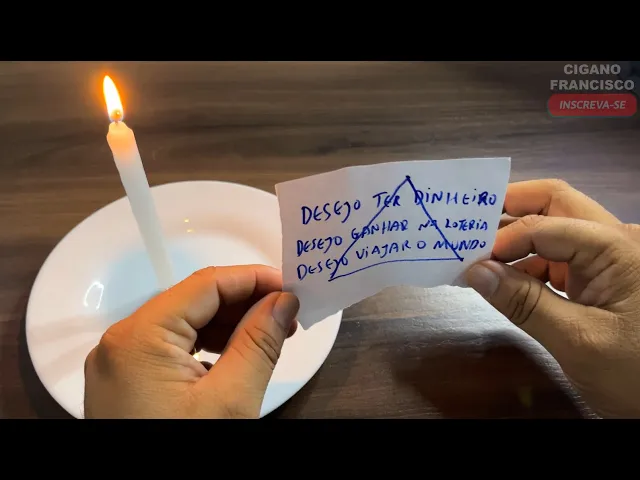 CIGANO
FRANCISCO
INSCREVA-SE
DESEJO TER DINHEIRO
DESEJO GANHAR NA LOTERIA
DESEJO VIAJAR O MUNDO